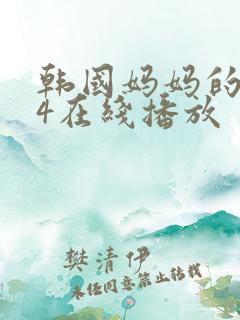 韩国妈妈的
4在线播放
樊清伊
未经同意禁止转载